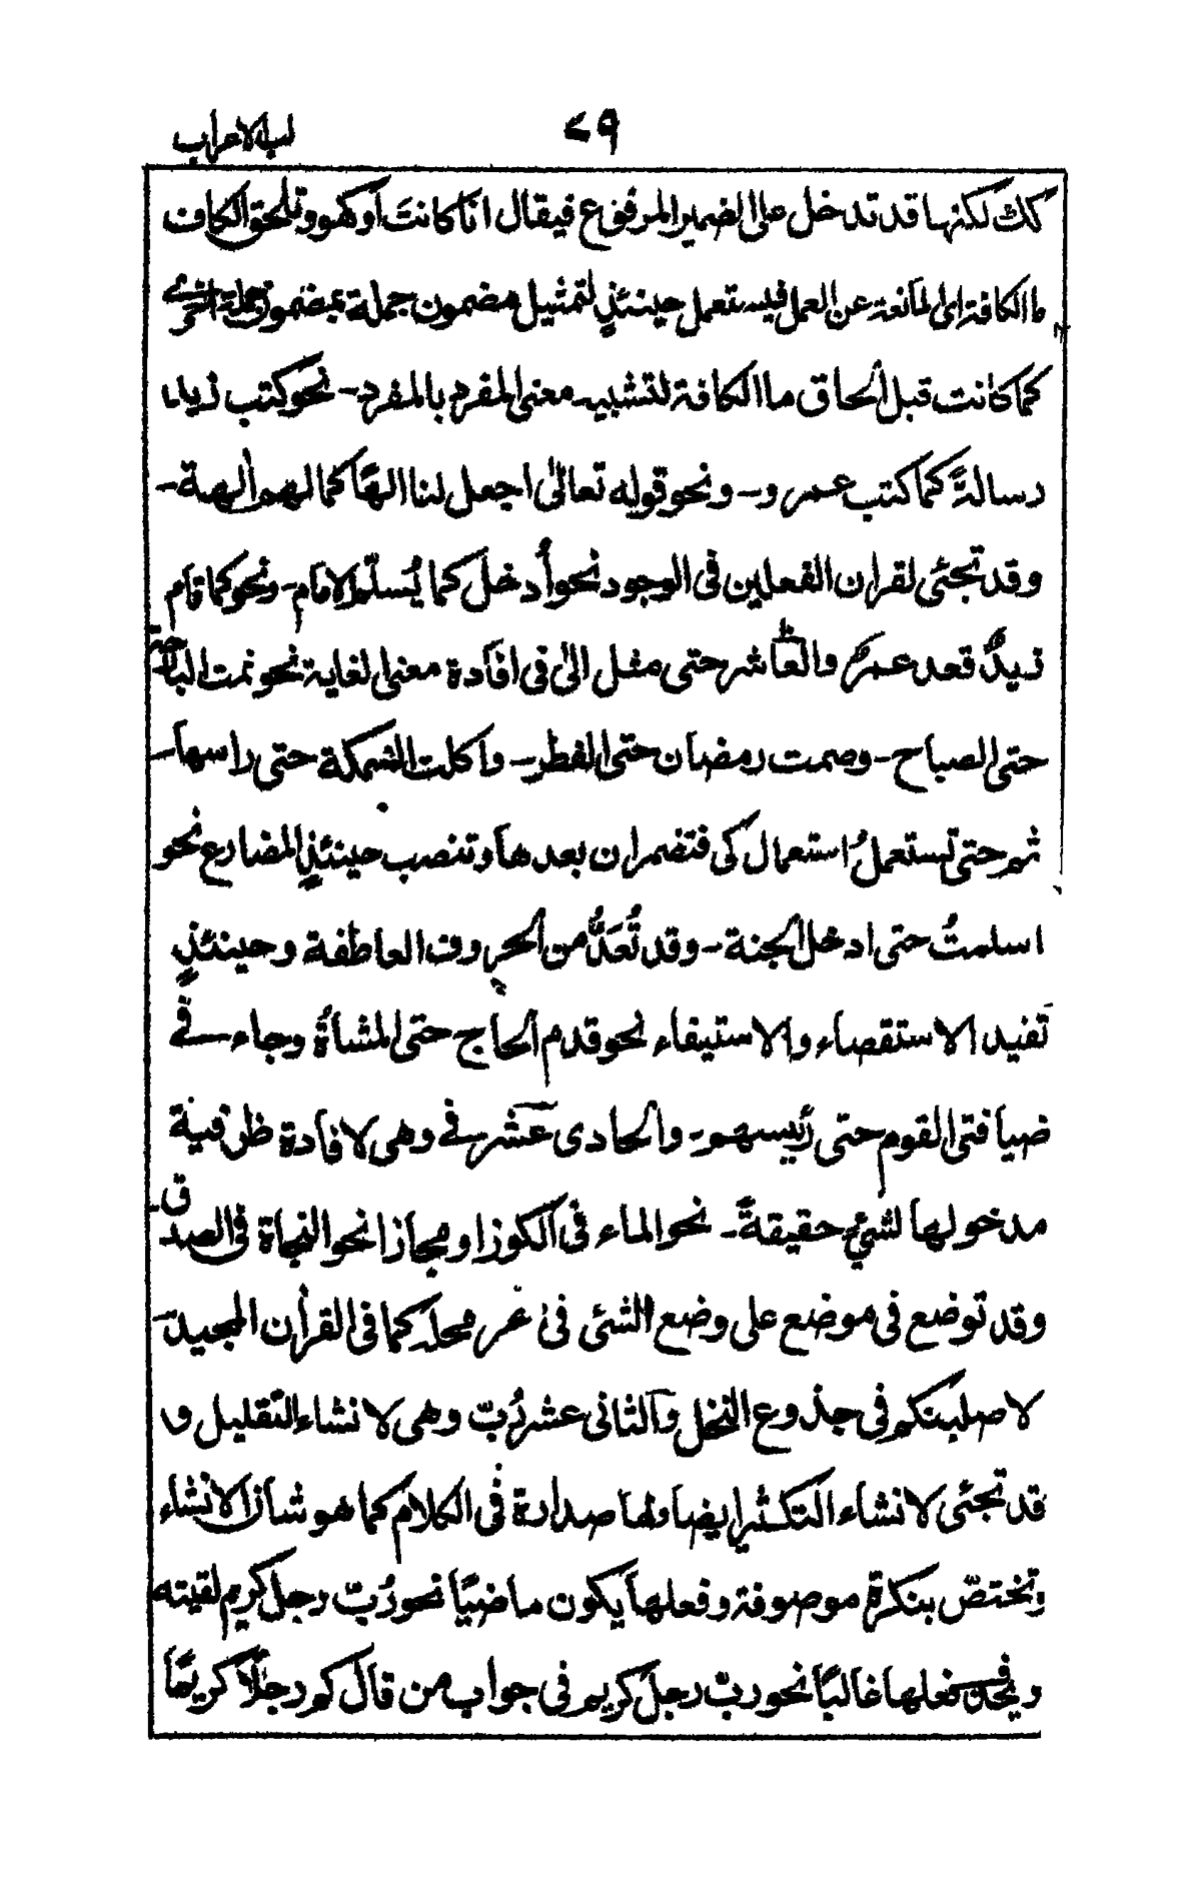 ۷۹
لب الاعراب
كك لكنها قد تدخل على الضمير المرفوع فيقال انا كانتَ او كهو وتلحق الكاف
ما الكافة اى المانعة عن العمل فيستعمل حينئذٍ لتمثيل مضمون جملة بمضمون جملة اخرىٰ
كما كانت قبل الحاق ما الكافة لتشبيه معنى المفرد بالمفرد۔ نحو كتب زيد
رسالةً كما كتب عمرو۔ ونحو قوله تعالىٰ اجعل لنا الهًا كما لهم اٰلهة۔
وقد تجئى لقران الفعلين فى الوجود نحو اُدخل كما يُسلّم الامام۔ ونحو كما قام
زيدٌ قعد عمرٌو والعاشر حتى مثل الىٰ فى افادة معنى الغاية نحو نمت البارحة
حتى الصباح۔ وصمت رمضان حتى الفطر۔ واكلت السمكة حتى راسها۔
ثم حتى تستعملُ استعمال كى فتضمر ان بعدها وتنصب حينئذٍ المضارع نحو
اسلمتُ حتى ادخل الجنة۔ وقد تُعَدُّ من الحروف العاطفة وحينئذٍ
تفيد الاستقصاء والاستيفاء نحو قدم الحاج حتى المشاةُ وجاء فى
ضيافتى القوم حتى رئيسهم۔ والحادى عشر فى وهى لافادة ظرفية
مدخولها لشئٍ حقيقةً۔ نحو الماء فى الكوز او مجازا نحو النجاة فى الصدق۔
وقد توضع فى موضع على وضع الشئى فىٰ غير محله كما فى القراٰن المجيد۔
لاصلبنكم فى جذوع النخل والثانى عشر رُبّ وهى لانشاء التقليل و
قد تجئى لانشاء التكثير ايضا ولها صدارة فى الكلام كما هو شان الانشاء
وتختصّ بنكرة موصوفة وفعلها يكون ماضيًا نحو رُبّ رجل كريم لقيته
ويحذف فعلها غالبًا نحو ربّ رجل كريم فى جواب من قال كم رجلًا كريمًا